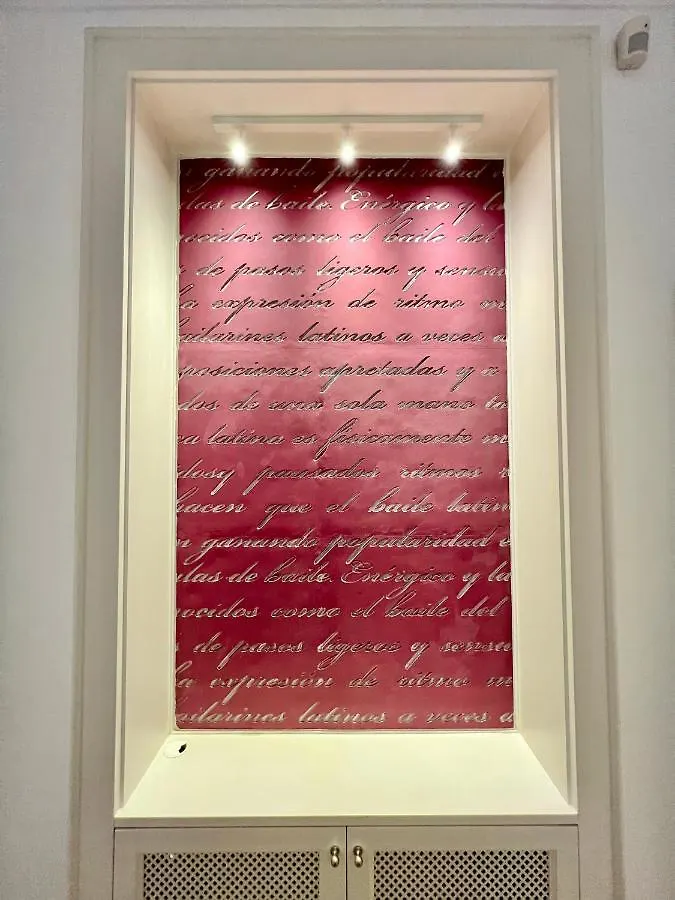 n ganando popularidad e
ulas de baile. Enérgico y la
nocidos como el baile del
s de pasos ligeros y sensu
la expresión de ritmo m
ailarines latinos a veces a
posiciones apretadas y a
dos de una sola mano ta
ca latina es físicamente m
idosy pausados ritmos
hacen que el baile latin
n ganando popularidad e
ulas de baile. Enérgico y la
nocidos como el baile del
s de pasos ligeros y sensu
la expresión de ritmo m
ailarines latinos a veces a